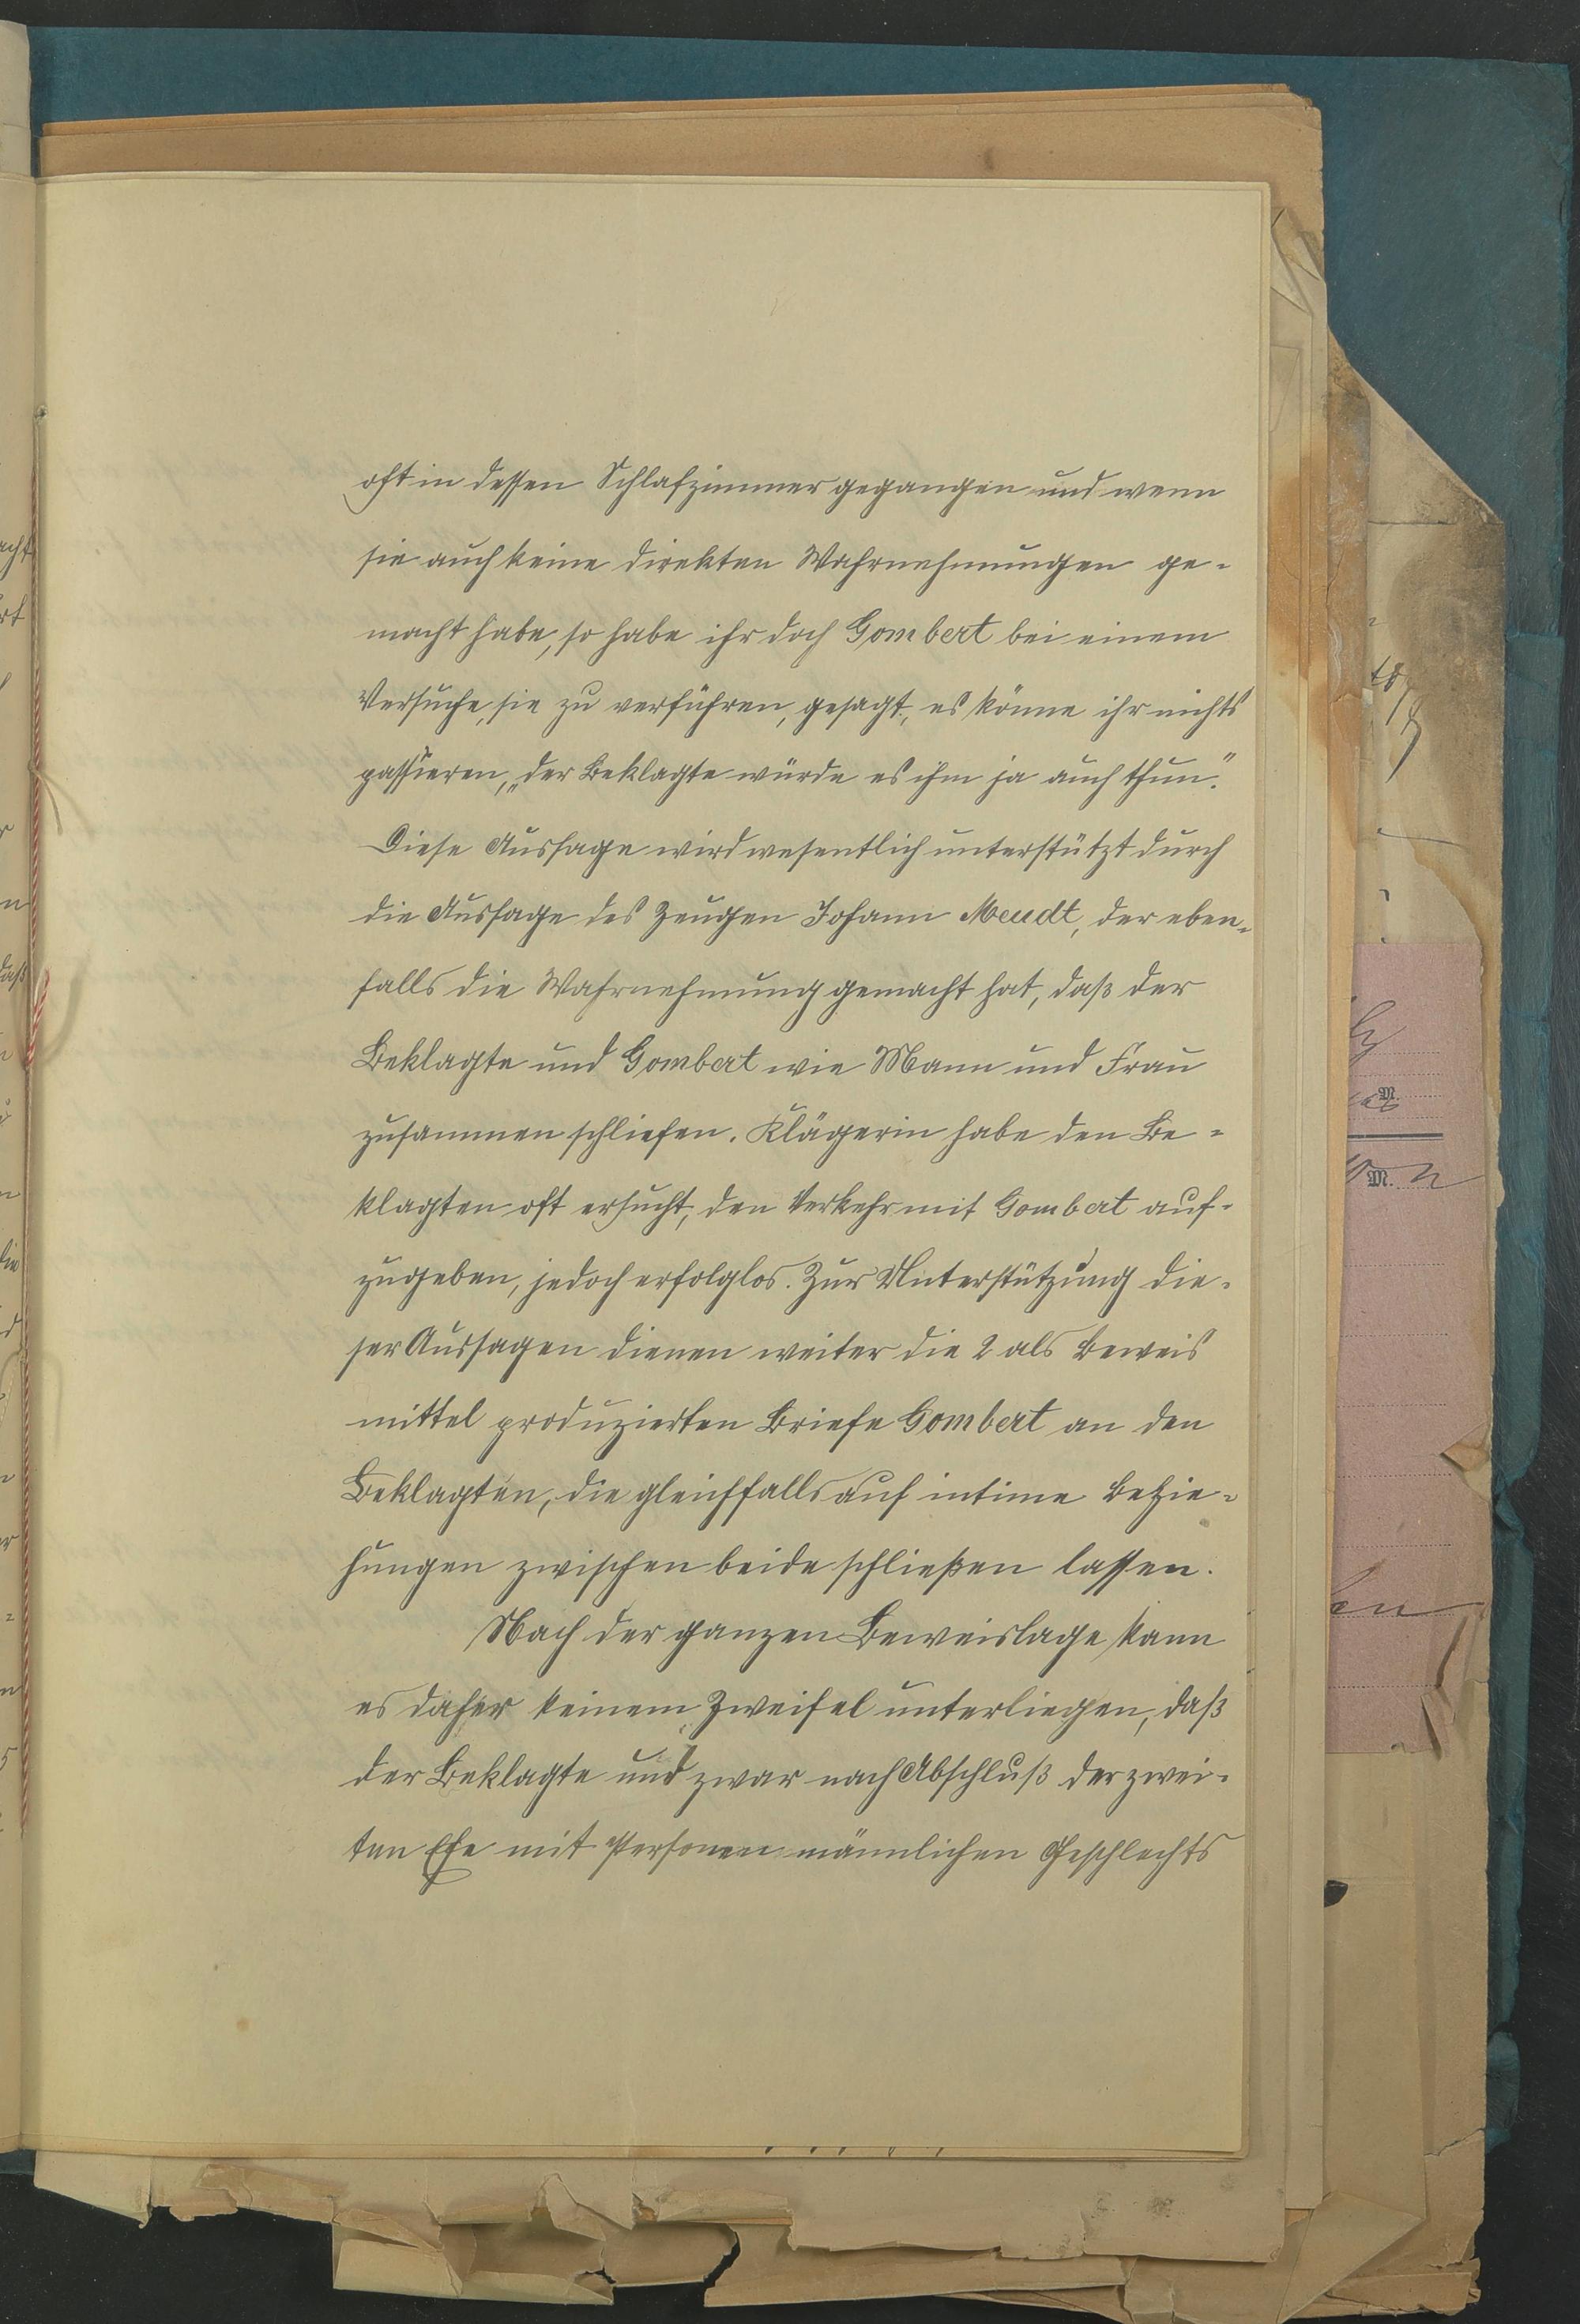 oft in dessen Schlafzimmer gegangen und wenn
sie auch keine direkten Wahrnehmungen ge-
macht habe, so habe ihr doch Gombert bei einem
Versuche, sie zu verführen, gesagt, es könne ihr nichts
passieren, „der Beklagte würde es ihm ja auch thun."
Diese Aussage wird wesentlich unterstützt durch
die Aussage des Zeugen Johann Meudt, der eben-
falls die Wahrnehmung gemacht hat, daß der
Beklagte und Gombert wie Mann und Frau
zusammen schliefen. Klägerin habe den Be-
klagten oft ersucht, den Verkehr mit Gombert auf-
zugeben, jedoch erfolglos. Zur Unterstützung die-
ser Aussagen dienen weiter die 2 als Beweis
mittel produzierten Briefe Gombert an den
Beklagten, die gleichfalls auf intime Bezie-
hungen zwischen beide schließen lassen.
Nach der ganzen Beweislage kann
es daher keinem Zweifel unterliegen, daß
der Beklagte und zwar nach Abschluß der zwei-
ten Ehe mit Personen männlichen Geschlechts